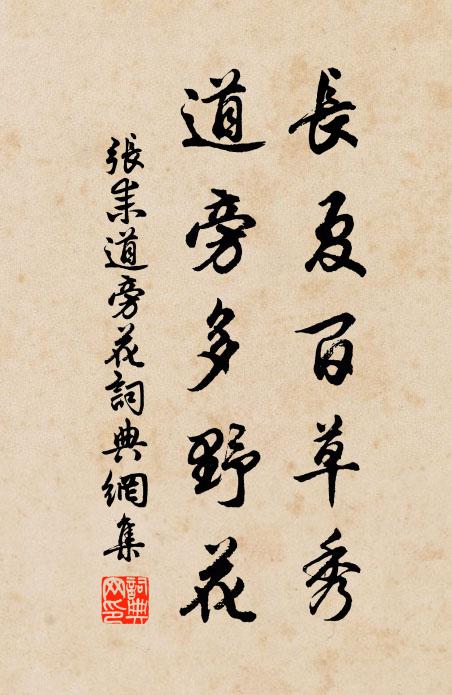 長夏百草秀
道旁多野花
張耒道旁花詞典網集
詞典網印